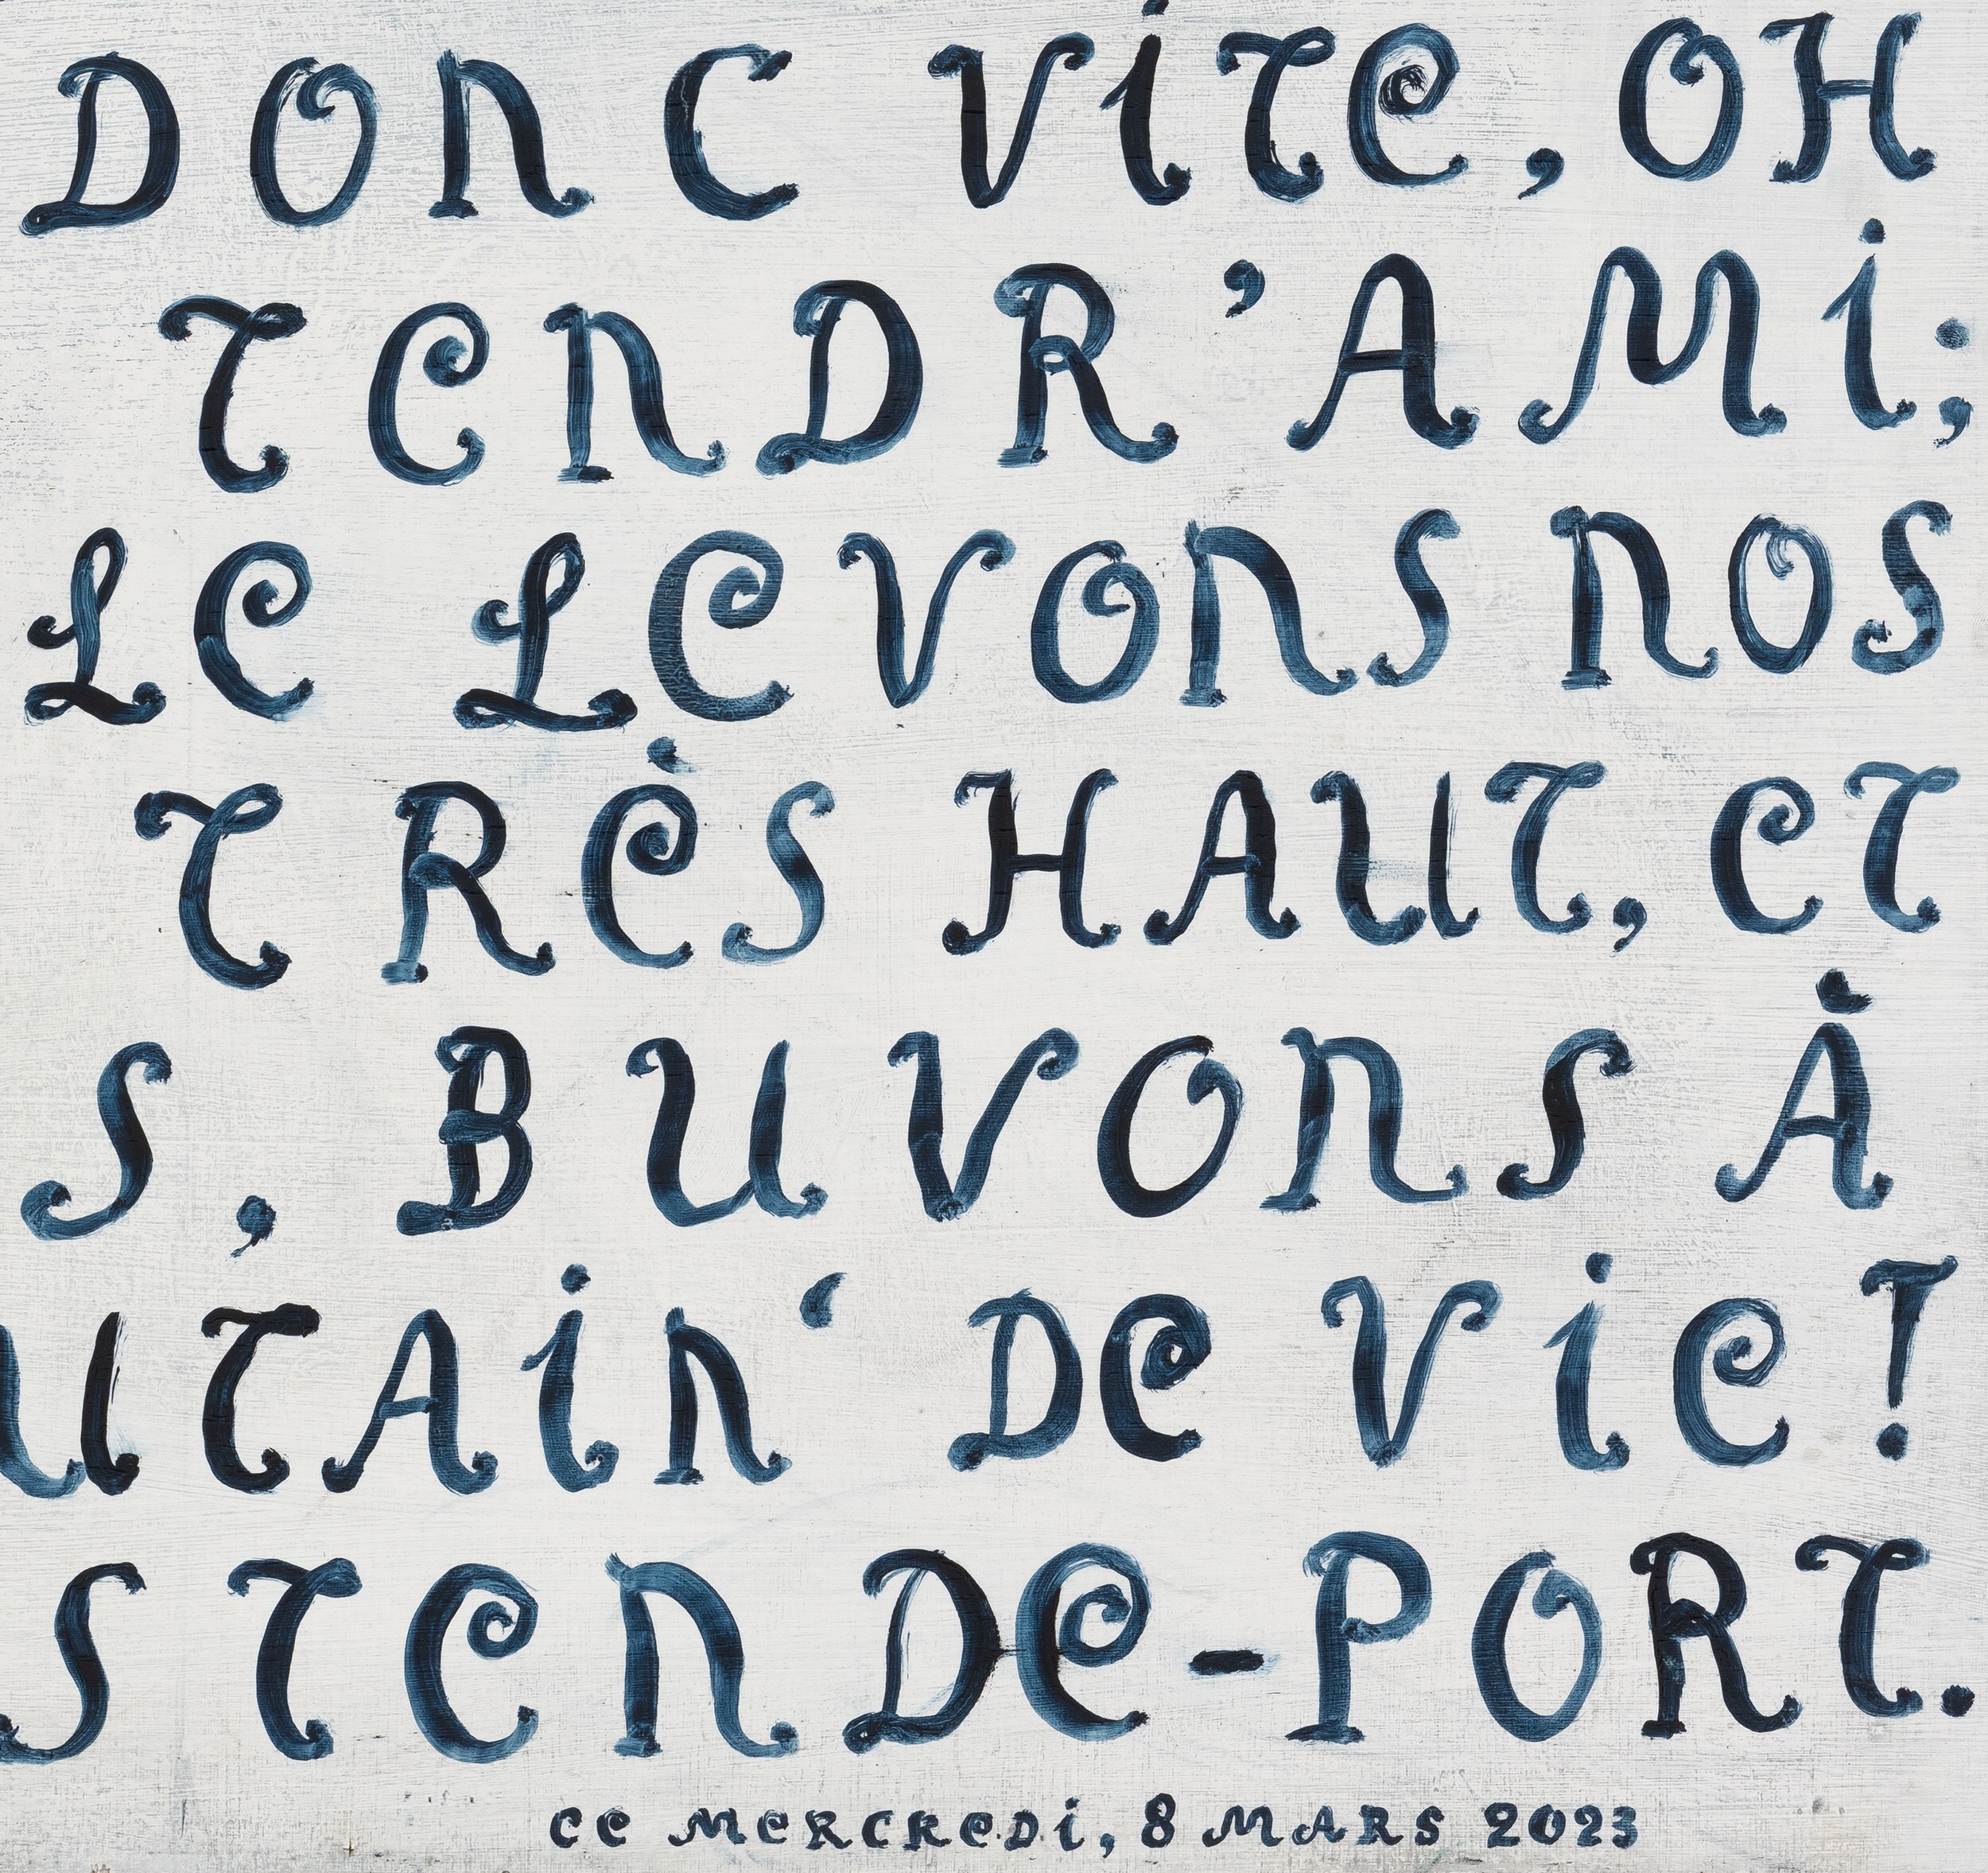 DONC VITE, OH
TENDR'AMI;
LE LEVONS NOS
TRÈS HAUT, ET
S, BUVONS À
UTAIN' DE VIE!
S TENDE-PORT.
CE MERCREDI, 8 MARS 2023